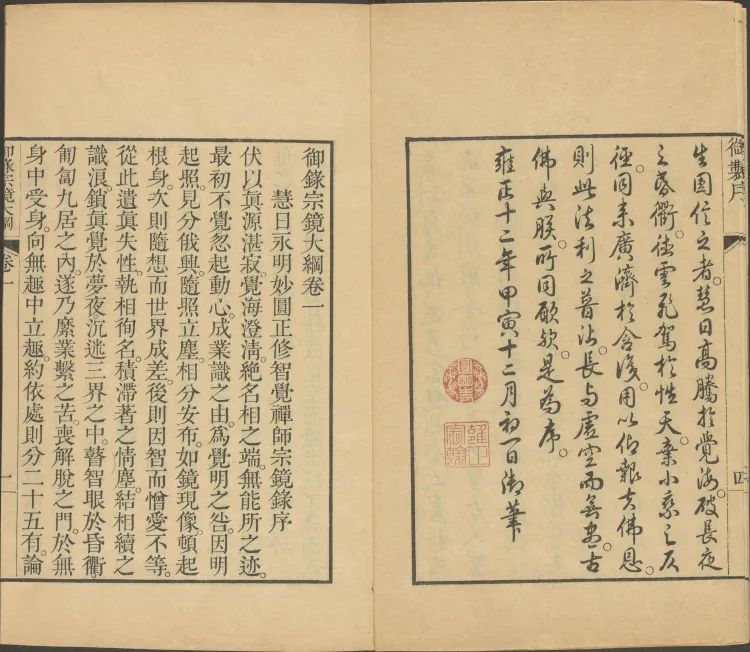 御製序
四
生圓信之者。慧日高騰於覺海。破長夜
之昏衢。雲飛駕於性天。棄小乘之仄
徑。同来廣濟於含識。用以仰報佛恩。
則此法利之普沾。長与虛空而無盡。古
佛與朕所同願欤。是為序。
雍正十二年甲寅十二月初一日御筆
圓明主人
雍正宸翰
御錄宗鏡大綱卷一
慧日永明妙圓正修智覺禪師宗鏡錄序
伏以真源湛寂。覺海澄清。絶名相之端。無能所之迹。
最初不覺。忽起動心。成業識之由。爲覺明之咎。因明
起照。見分俄興。隨照立塵。相分安布。如鏡現像。頓起
根身。次則隨想而世界成差。後則因智而憎愛不等。
從此遺真失性。執相徇名。積滯著之情塵。結相續之
識浪。鎖真覺於夢夜。沉迷三界之中。瞽智眼於昏衢。
匍匐九居之內。遂乃縻業繫之苦。喪解脫之門。於無
身中受身。向無趣中立趣。約依處則分二十五有。論
御錄宗鏡大綱
卷一
一